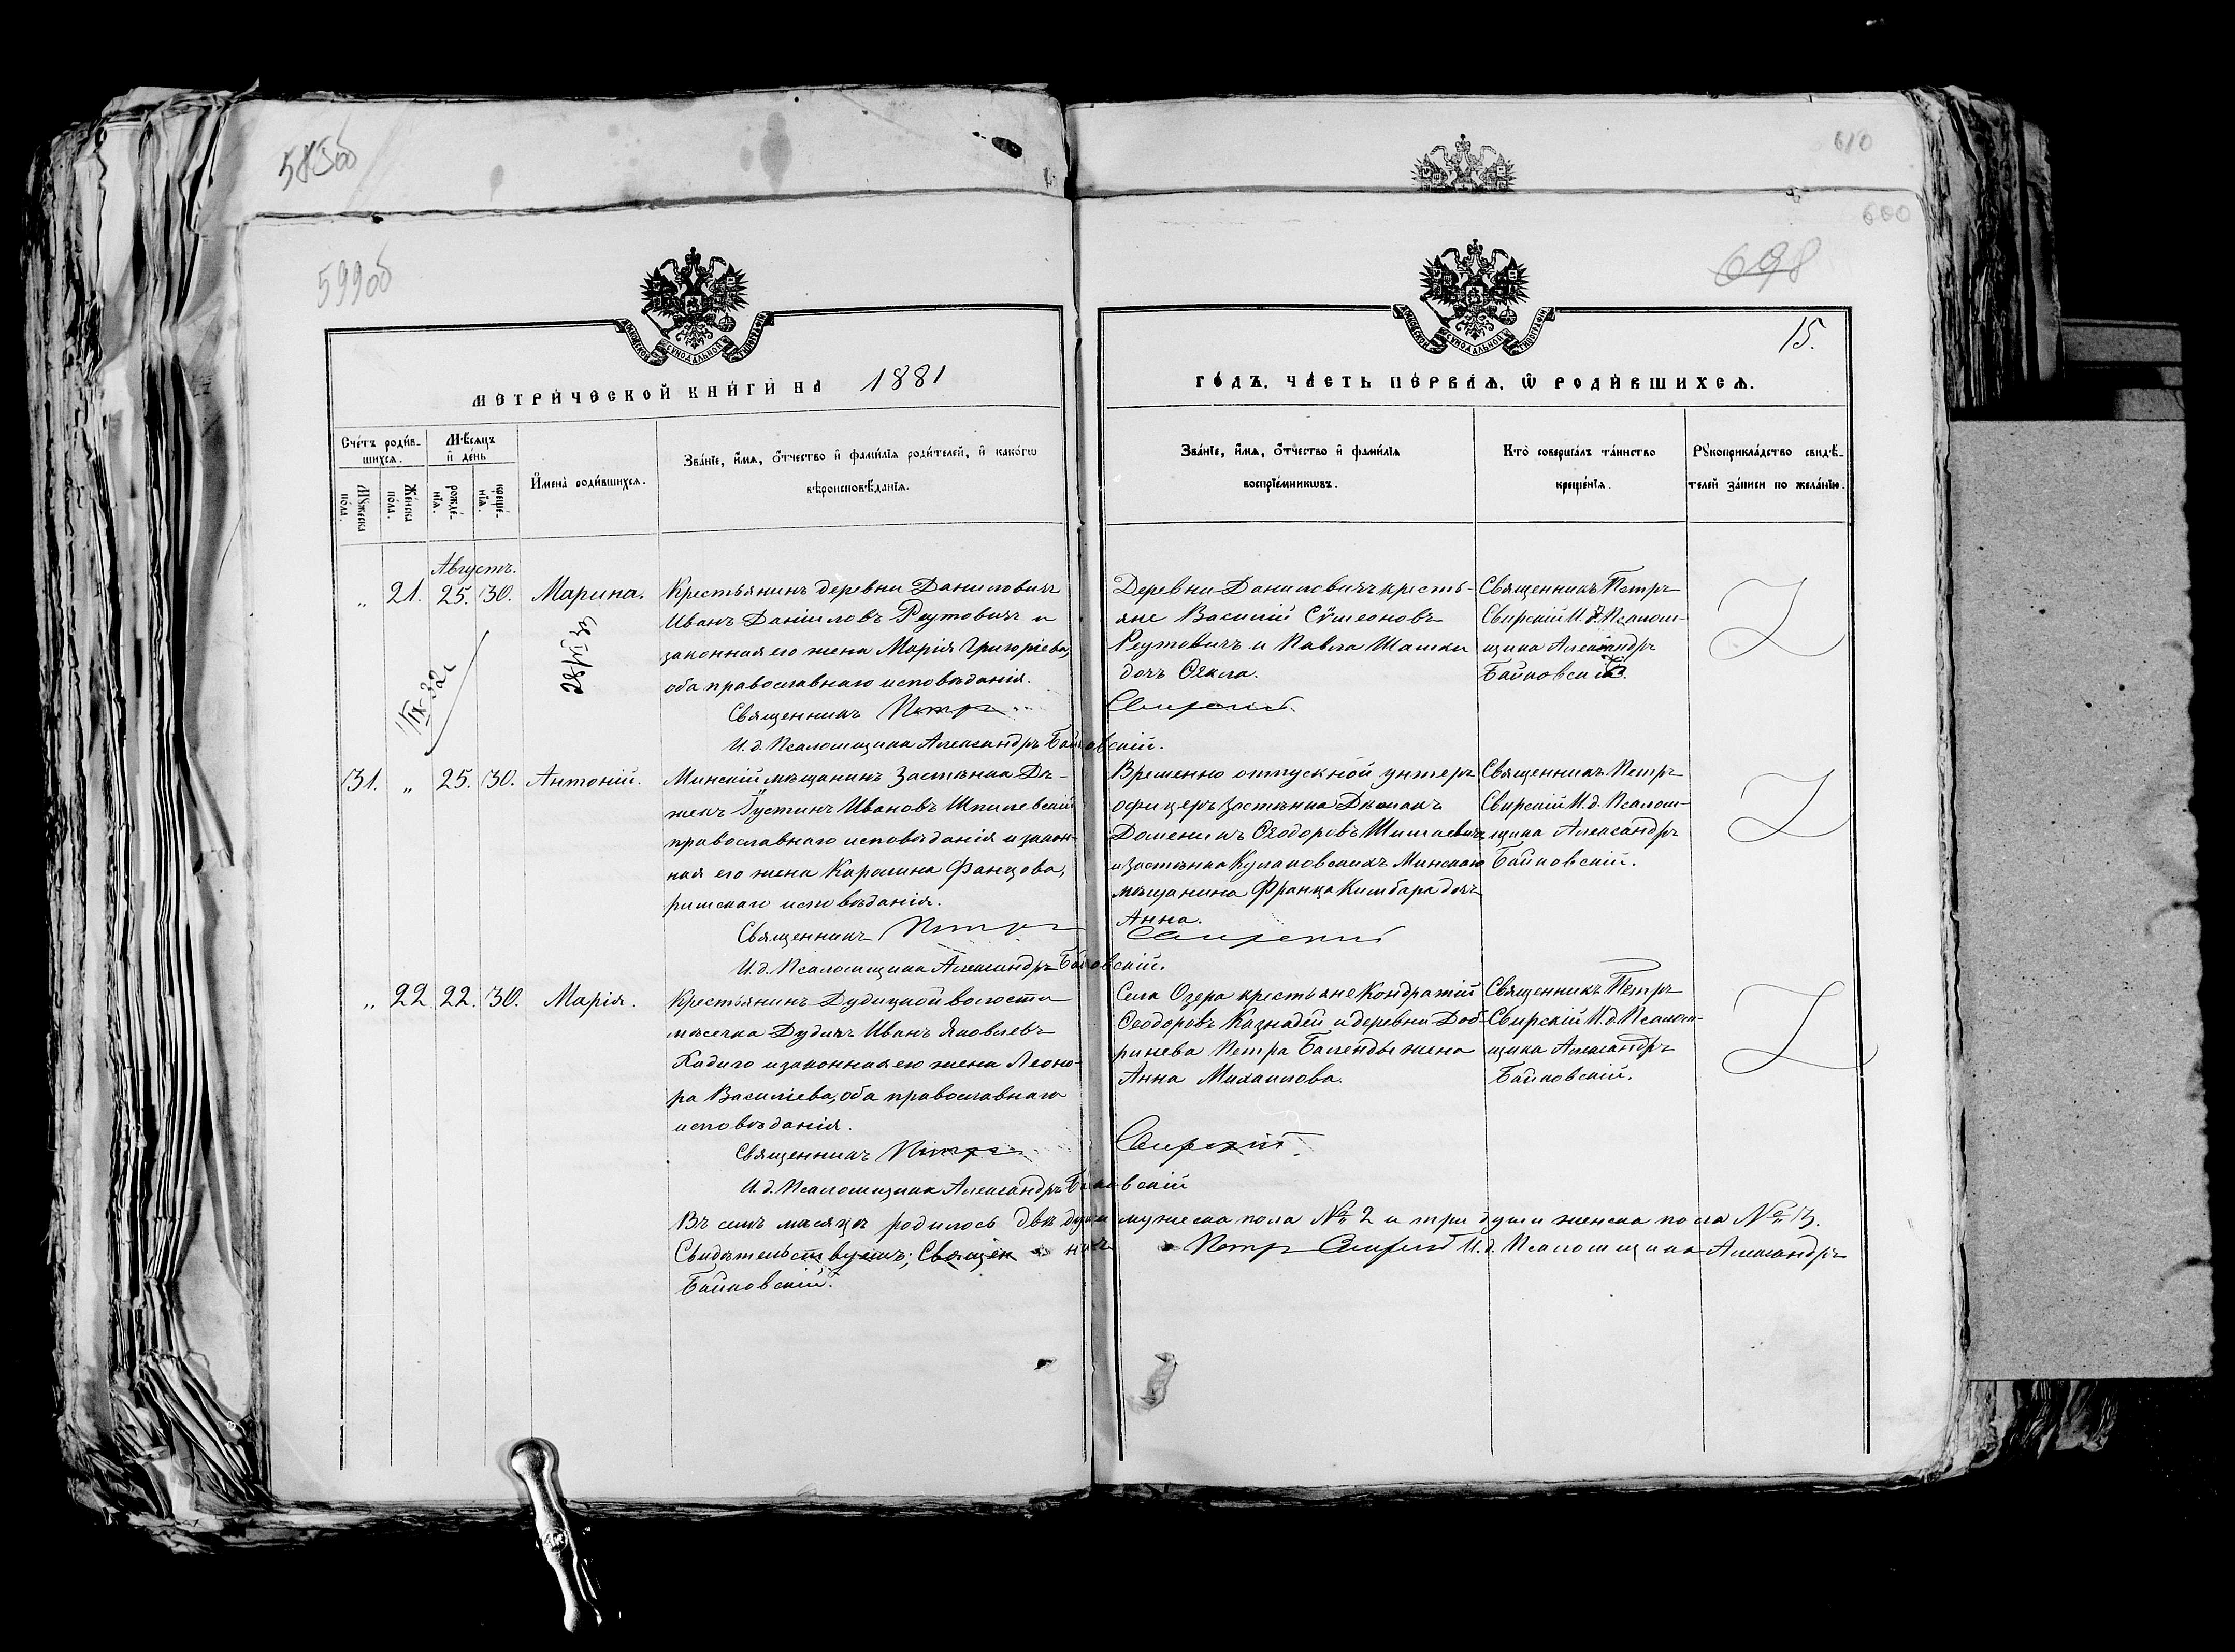 585об
610
600
599об
698
15.
МЕТРИЧЕСКОЙ КНИГИ НА 1881
ГОДЪ, ЧАСТЬ ПЕРВАЯ, Ѿ РОДИВШИХСЯ.
Счетъ родив-
шихся.
Мѣсяцъ
и день
Мужеска
пола.
Женска
пола.
рожде-
нія.
креще-
нія.
Имена родившихся.
Званіе, имя, отчество и фамилія родителей, и какогѡ
вѣроисповѣданія.
Званіе, имя, отчество и фамилія
воспріемникѡвъ.
Кто совершалъ таинство
крещенія.
Рукоприкладство свидѣ-
телей записи по желанію.
Августъ.
„ 21. 25. 30. Марина.
Крестьянинъ деревни Даниловичъ
Иванъ Даніиловъ Реутовичъ и
законная его жена Марія Григоріева,
оба православнаго исповѣданія.
Священникъ Петръ
И. д. Псаломщика Александръ Байковскій.
Деревни Даниловичъ кресть-
яне Василій Сѵмеоновъ
Реутовичъ и Павла Шашки
дочь Ѳекла.
Свирскій.
Священникъ Петръ
Свирскій И. д. Псалом-
щика Александръ
Байковскій.
31. „ 25. 30. Антоній.
Минскій мѣщанинъ Застѣнка Дѣ-
жекъ Густинъ Ивановъ Шпилевскій
православнаго исповѣданія и закон-
ная его жена Каролина Францова,
римскаго исповѣданія.
Священникъ Петръ
И. д. Псаломщика Александръ Байковскій.
Временно отпускной унтеръ
офицеръ застѣнка
Доменикъ Ѳеодоровъ
и Застѣнка Кулаковскихъ Минскаго
мѣщанина Франца Кимбара дочь
Анна.
Свирскій
Священникъ Петръ
Свирскій И. д. Псалом-
щика Александръ
Байковскій.
„ 22 22. 30. Марія.
Крестьянинъ Дудицкой волости
мѣстечка Дудичъ Иванъ Яковлевъ
и законная его жена Леоно-
ра Василіева, оба православнаго
исповѣданія.
Священникъ Петръ
И. д. Псаломщика Александръ Байковскій
Села Озера крестьяне Кондратій
Ѳеодоровъ Казнадей и деревни Доб-
ринева Петра Баленды жена
Анна Михаилова.
Свирскій.
Священникъ Петръ
Свирскій И. д. Псалом-
щика Александръ
Байковскій.
Въ семъ мѣсяцѣ родилось двѣ души мужеска пола № 2 и три души женска пола № 3.
Свидѣтельствуемъ; Священникъ Петръ Свирскій И. д. Псаломщика Александръ
Байковскій.